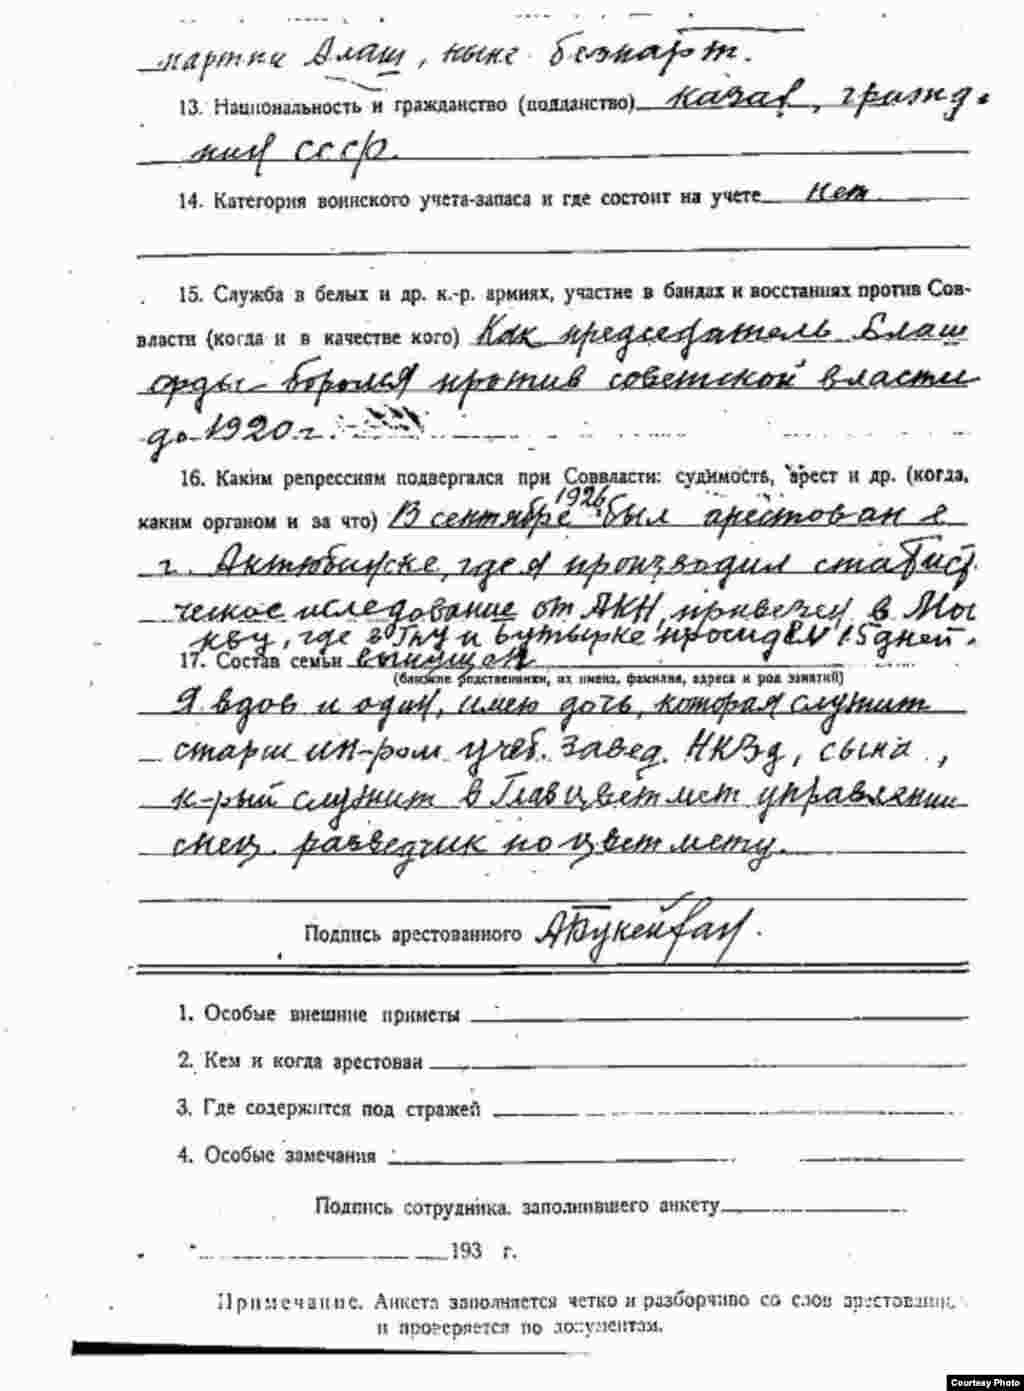 партии Алаш, ныне безпарт.
13. Национальность и гражданство (подданство) казак, гражд.
СССР.
14. Категория воинского учета-запаса и где состоит на учете нет
15. Служба в белых и др. к.-р. армиях, участие в бандах и восстаниях против Сов-
власти (когда и в качестве кого) Как председатель Алаш
орды боролся против советской власти
до 1920 г.
16. Каким репрессиям подвергался при Соввласти: судимость, арест и др. (когда,
1926
каким органом и за что) В сентябре был арестован в
г. Актюбинске, где я производил статист
ческое иследование от АКН, привезен в Мос
кву, где в ГПУ и Бутырке просидел 15 дней.
17. Состав семьи выпущен
(ближние родственники, их имена, фамилия, адреса и род занятий)
Я вдов и один, имею дочь, которая служит
старш ин-ром учеб. завед. НКЗд, сына,
к-рый служит в Главцветмет управлении
спец. разведчик по цветмету.
Подпись арестованного АБукейхан.
1. Особые внешние приметы
2. Кем и когда арестован
3. Где содержится под стражей
4. Особые замечания
Подпись сотрудника, заполнившего анкету
" 193 г.
Примечание. Анкета заполняется четко и разборчиво со слов арестованн.
и проверяется по документам.
Courtesy Photo